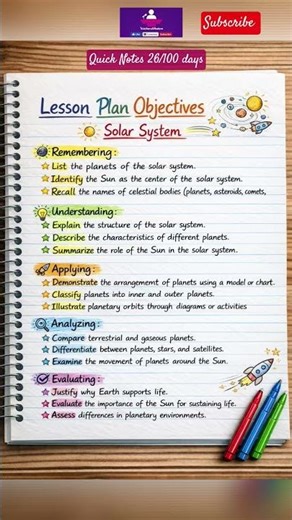 Subscribe
Quick Notes 26/100 days
Lesson Plan Objectives
Solar System
Remembering:
List the planets of the solar system.
Identify the Sun as the center of the solar system.
Recall the names of celestial bodies (planets, asteroids, comets,
Understanding:
Explain the structure of the solar system.
Describe the characteristics of different planets.
Summarize the role of the Sun in the solar system.
Applying:
Demonstrate the arrangement of planets using a model or chart.
Classify planets into inner and outer planets.
Illustrate planetary orbits through diagrams or activities
Analyzing:
Compare terrestrial and gaseous planets.
Differentiate between planets, stars, and satellites.
Examine the movement of planets around the Sun.
Evaluating:
Justify why Earth supports life.
Evaluate the importance of the Sun for sustaining life.
Assess differences in planetary environments.